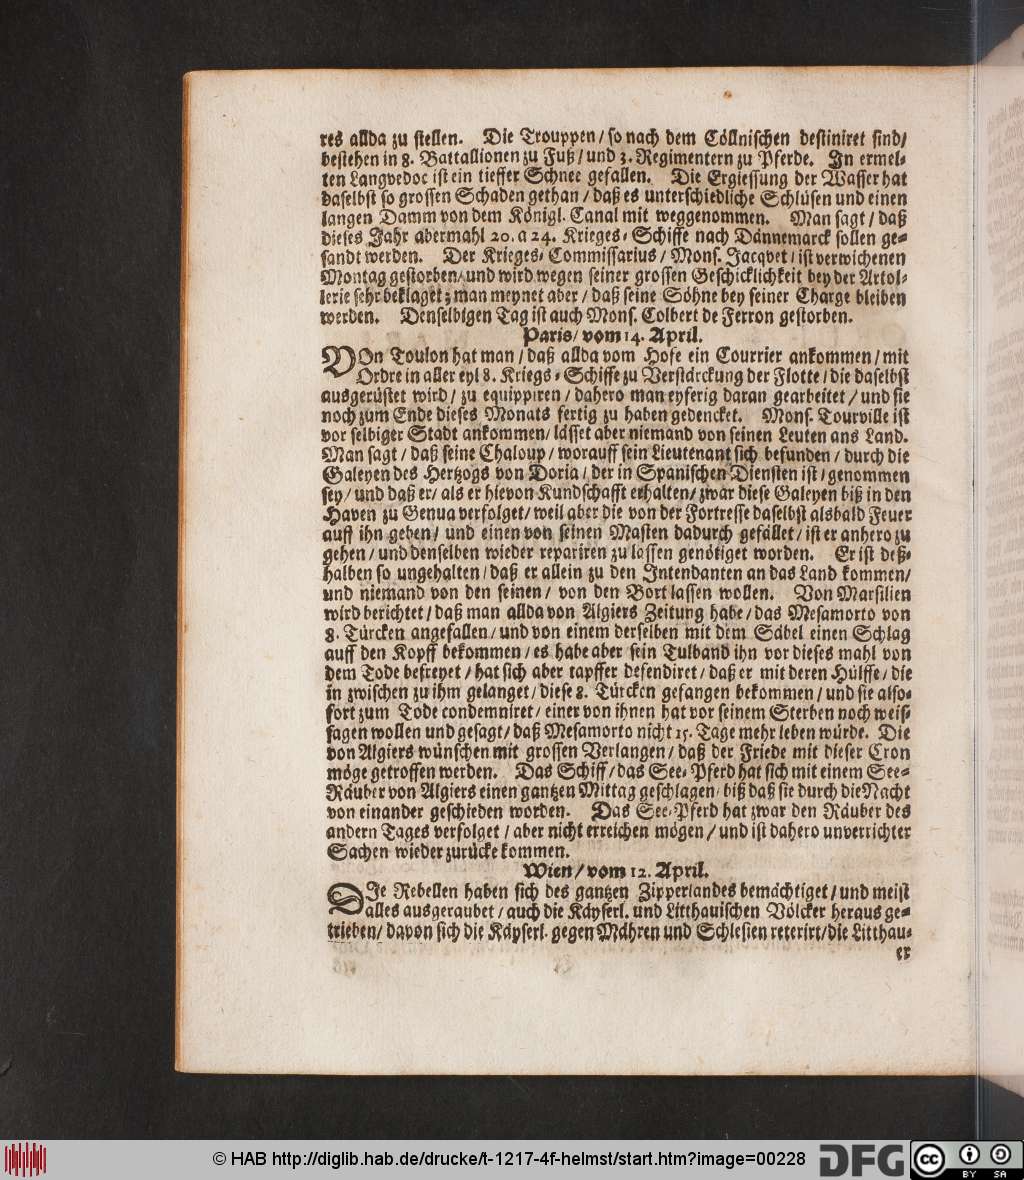 res allda zu stellen. Die Trouppen / so nach dem Cöllnischen destiniret sind/
bestehen in 8. Battallionen zu Fuß / und 3. Regimentern zu Pferde. In ermel-
ten Langvedoc ist ein tieffer Schnee gefallen. Die Ergiessung der Wasser hat
daselbst so grossen Schaden gethan / daß es unterschiedliche Schlüsen und einen
langen Damm von dem Königl. Canal mit weggenommen. Man sagt / daß
dieses Jahr abermahl 20. a 24. Krieges-Schiffe nach Dännemarck sollen ge-
sandt werden. Der Krieges-Commissarius / Mons. Jacqvet / ist verwichenen
Montag gestorben/ und wird wegen seiner grossen Geschicklichkeit bey der Artol-
lerie sehr beklaget; man meynet aber / daß seine Söhne bey seiner Charge bleiben
werden. Denselbigen Tag ist auch Mons. Colbert de Ferron gestorben.
Paris/ vom 14. April.
VOn Toulon hat man / daß allda vom Hofe ein Courrier ankommen / mit
Ordre in aller eyl 8. Kriegs-Schiffe zu Verstärckung der Flotte / die daselbst
ausgerüstet wird / zu equippiren / dahero man eyferig daran gearbeitet / und sie
noch zum Ende dieses Monats fertig zu haben gedencket. Mons. Tourville ist
vor selbiger Stadt ankommen / lässet aber niemand von seinen Leuten ans Land.
Man sagt / daß seine Chaloup / worauff sein Lieutenant sich befunden / durch die
Galeyen des Hertzogs von Doria / der in Spanischen Diensten ist / genommen
sey / und daß er / als er hievon Kundschafft erhalten / zwar diese Galeyen biß in den
Haven zu Genua verfolget / weil aber die von der Fortresse daselbst alsbald Feuer
auff ihn geben / und einen von seinen Masten dadurch gefället / ist er anhero zu
gehen / und denselben wieder repariren zu lassen genötiget worden. Er ist deß-
halben so ungehalten / daß er allein zu den Intendanten an das Land kommen/
und niemand von den seinen / von den Bort lassen wollen. Von Marsilien
wird berichtet / daß man allda von Algiers Zeitung habe / das Mesamorto von
8. Türcken angefallen / und von einem derselben mit dem Säbel einen Schlag
auff den Kopff bekommen / es habe aber sein Tulband ihn vor dieses mahl von
dem Tode befreyet / hat sich aber tapffer defendiret / daß er mit deren Hülffe / die
in zwischen zu ihm gelanget / diese 8. Türcken gefangen bekommen / und sie also-
fort zum Tode condemniret / einer von ihnen hat vor seinem Sterben noch weis-
sagen wollen und gesagt / daß Mesamorto nicht 15. Tage mehr leben würde. Die
von Algiers wünschen mit grossen Verlangen / daß der Friede mit dieser Cron
möge getroffen werden. Das Schiff / das See-Pferd hat sich mit einem See-
Räuber von Algiers einen gantzen Mittag geschlagen / biß daß sie durch die Nacht
von einander geschieden worden. Das See-Pferd hat zwar den Räuber des
andern Tages verfolget / aber nicht erreichen mögen / und ist dahero unverrichter
Sachen wieder zurücke kommen.
Wien / vom 12. April.
DIe Rebellen haben sich des gantzen Zipperlandes bemächtiget / und meist
alles ausgeraubet / auch die Käyserl. und Litthauischen Völcker heraus ge-
trieben / davon sich die Käyserl. gegen Mähren und Schlesien reterirt / die Litthau-
er
© HAB http://diglib.hab.de/drucke/t-1217-4f-helmst/start.htm?image=00228
DFG
cc BY SA